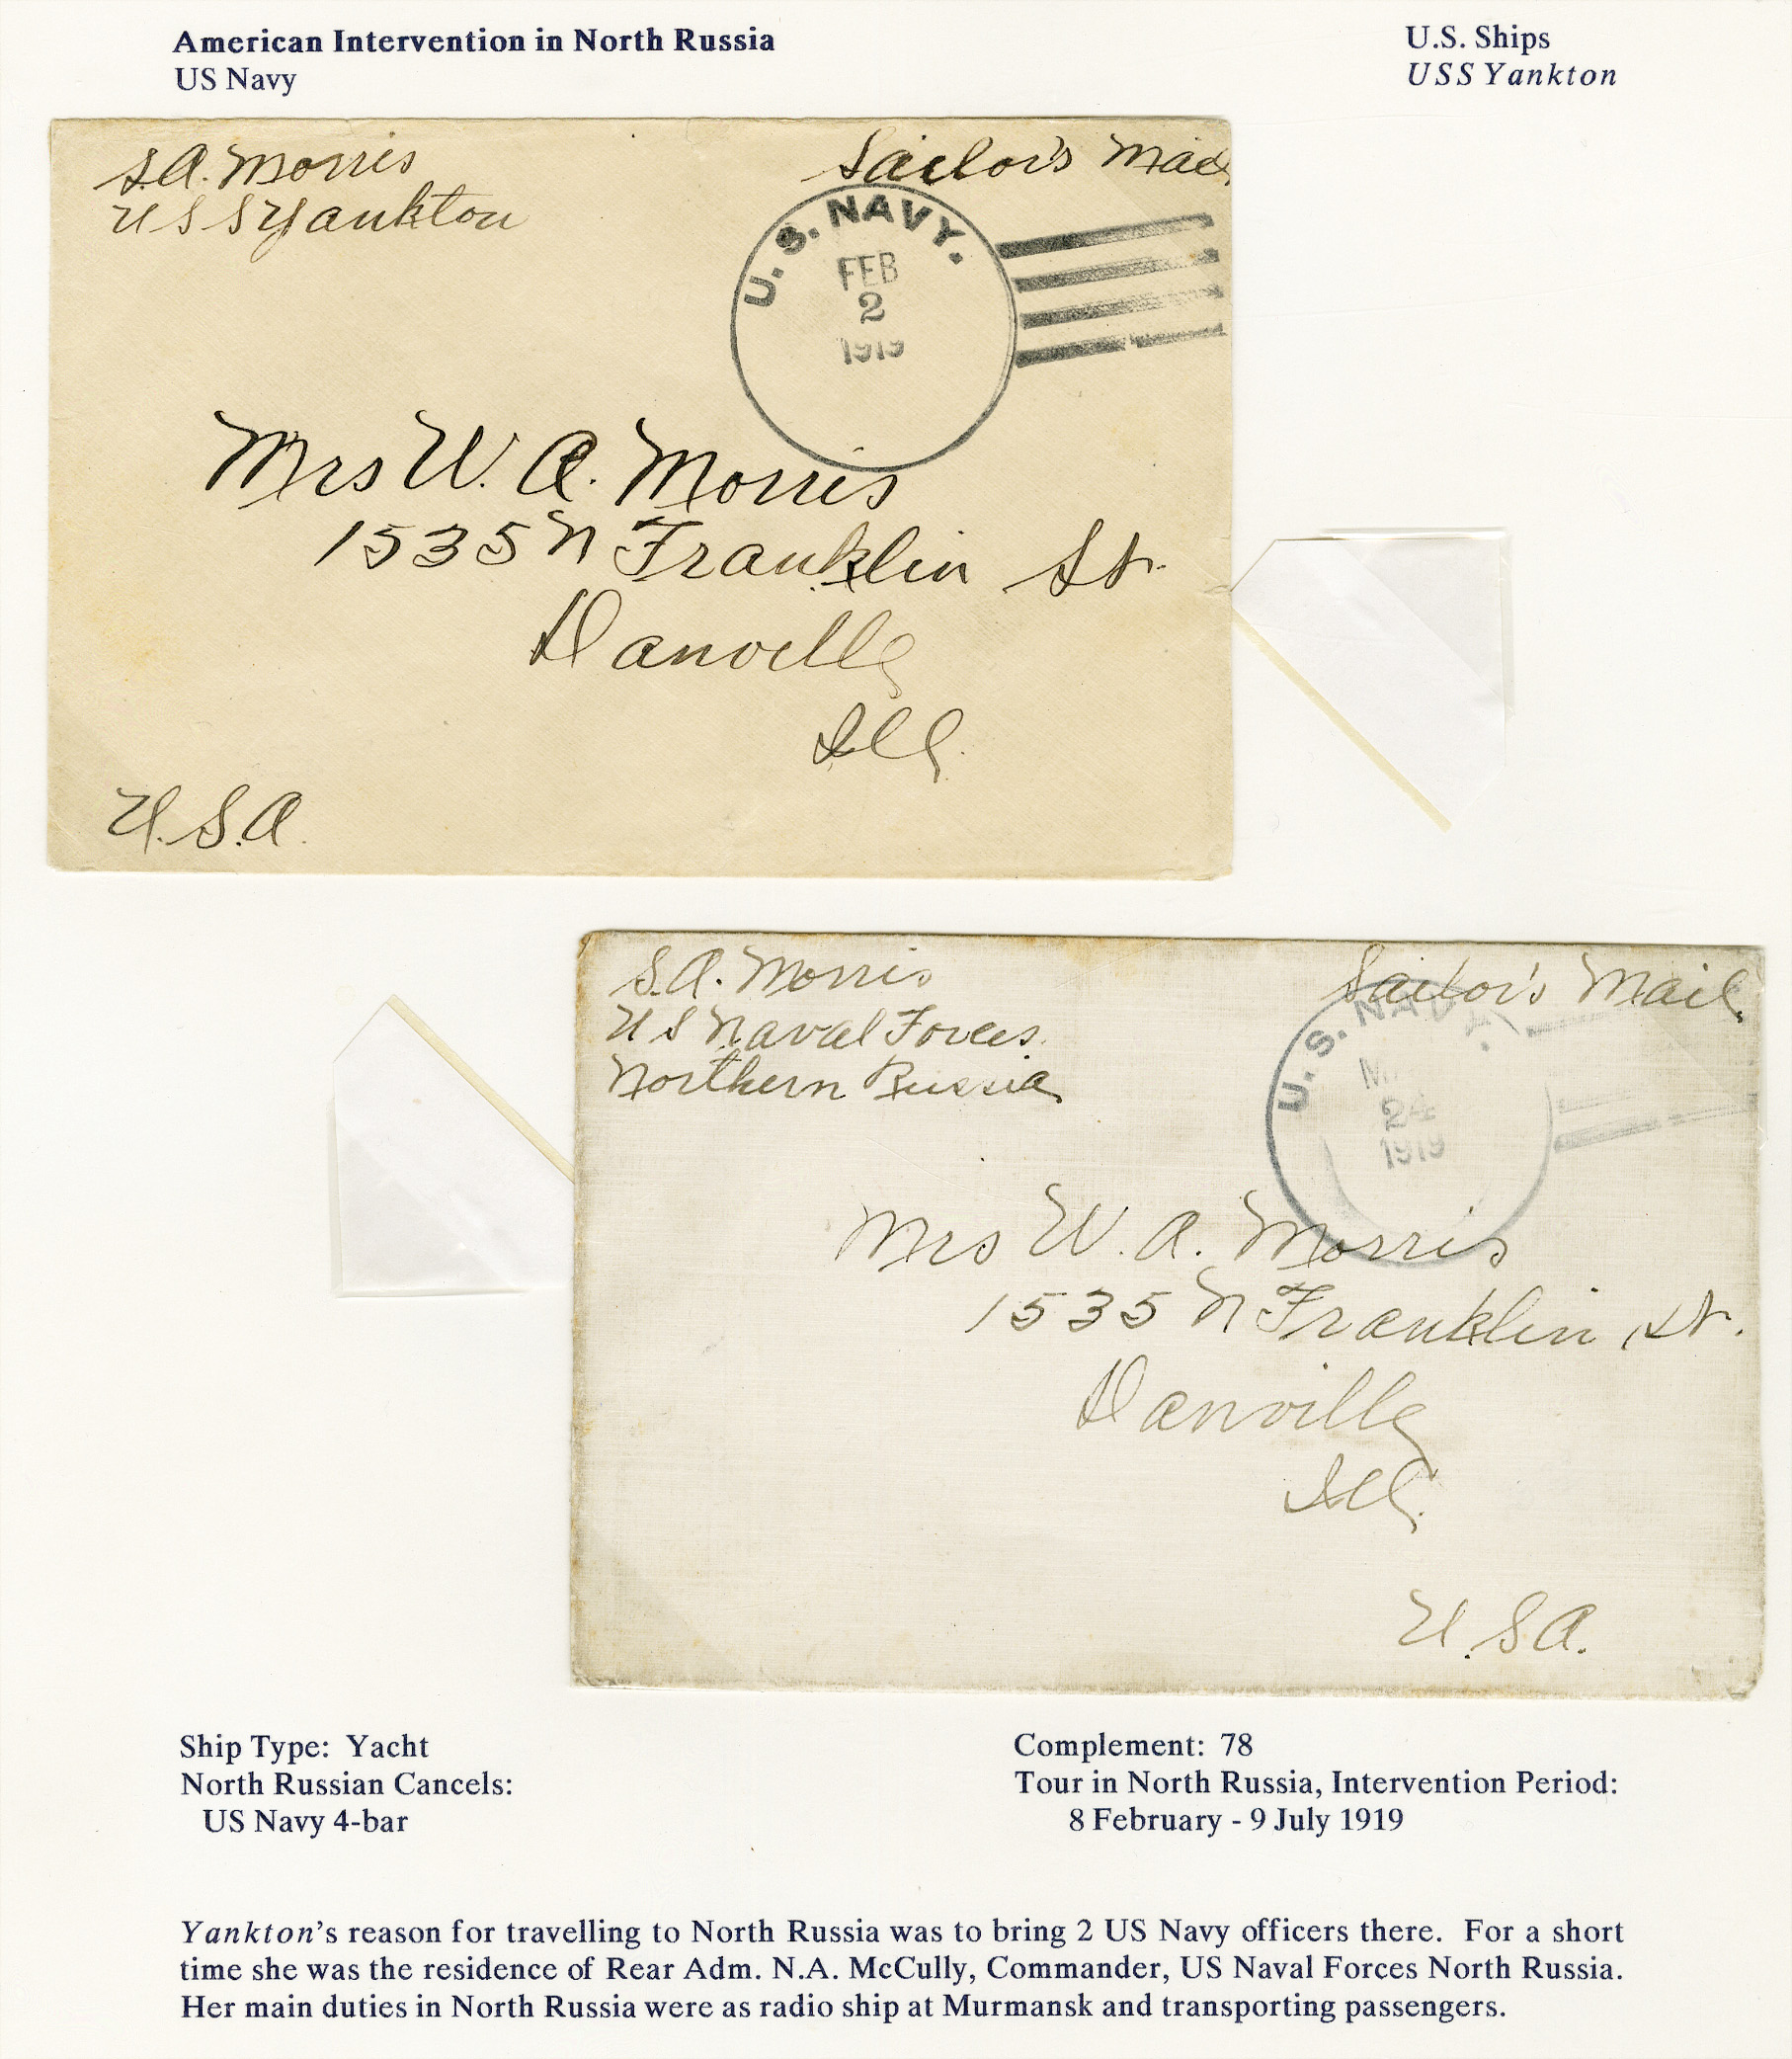 American Intervention in North Russia
US Navy
U.S. Ships
USS Yankton
S.A. Morris
USS Yankton
Sailor's Mail
U.S. NAVY.
FEB
2
1919
Mrs W. A. Morris
1535 N Franklin St.
Danville
Ill.
U.S.A.
S.A. Morris
US Naval Forces
Northern Russia
Sailor's Mail
U.S. NAVY.
24
1919
Mrs W. A. Morris
1535 N Franklin St.
Danville
Ill.
U.S.A.
Ship Type: Yacht
North Russian Cancels:
US Navy 4-bar
Complement: 78
Tour in North Russia, Intervention Period:
8 February - 9 July 1919
Yankton's reason for travelling to North Russia was to bring 2 US Navy officers there. For a short
time she was the residence of Rear Adm. N.A. McCully, Commander, US Naval Forces North Russia.
Her main duties in North Russia were as radio ship at Murmansk and transporting passengers.